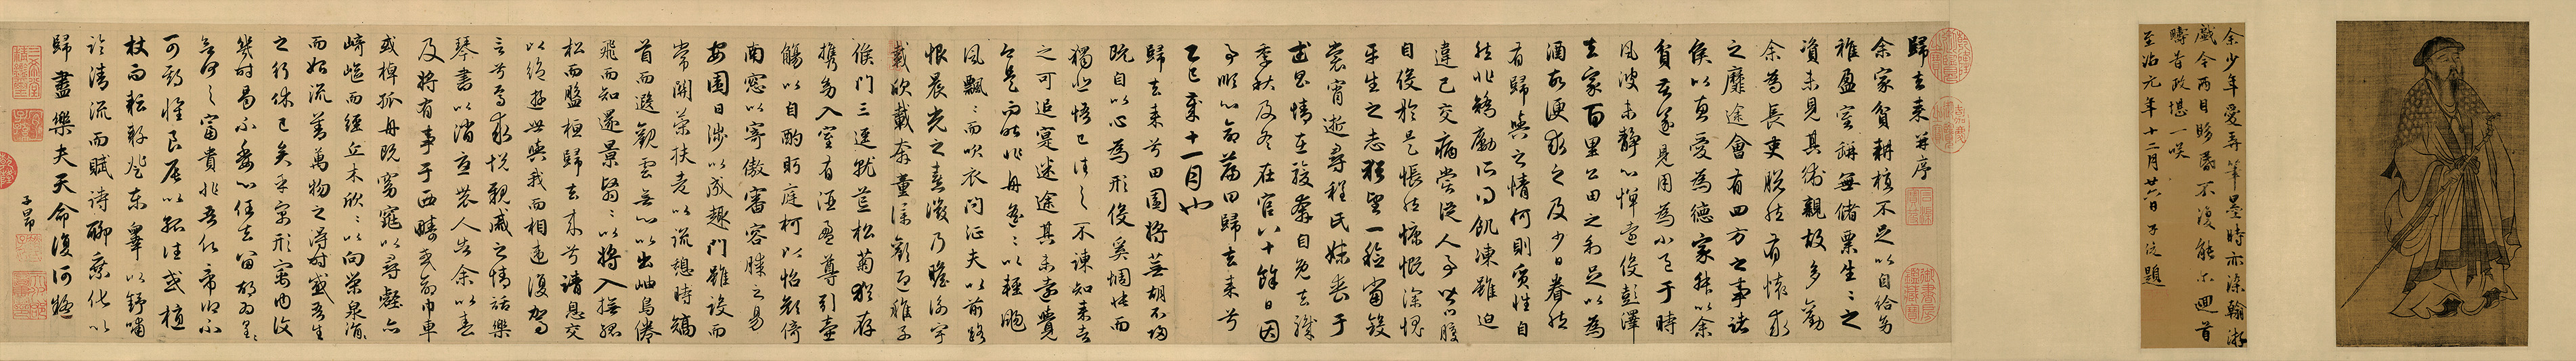 余少年愛弄筆墨時亦染翰游
戲今兩目眵昏不復能爾迴首
疇昔政堪一咲
至治元年十二月廿六日子俊題
歸去來并序
余家貧耕植不足以自給幼
稚盈室缾無儲粟生〻之
資未見其術親故多勸
余為長吏脫然有懷求
之靡途會有四方之事諸
侯以惠愛為德家叔以余
貧苦遂見用為小邑于時
風波未靜心憚遠役彭澤
去家百里公田之利足以為
酒故便求之及少日眷然
有歸與之情何則質性自
然非矯勵所得飢凍雖迫
違己交病嘗從人事皆口腹
自役於是悵然慷慨深愧
平生之志猶望一稔當斂
裳宵逝尋程氏妹喪于
武昌情在駿奔自免去職
季秋及冬在官八十餘日因
事順心命篇曰歸去來兮
乙巳歲十一月也
歸去來兮田園將蕪胡不歸
既自以心為形役奚惆悵而
獨悲悟已往之不諫知來者
之可追寔迷途其未遠覺
今是而昨非舟遙〻以輕颺
風飄〻而吹衣問征夫以前路
恨晨光之熹微乃瞻衡宇
載欣載奔童僕歡迎稚子
候門三逕就荒松菊猶存
攜幼入室有酒盈尊引壺
觴以自酌眄庭柯以怡顏倚
南窗以寄傲審容膝之易
安園日涉以成趣門雖設而
常關策扶老以流憩時矯
首而遐觀雲無心以出岫鳥倦
飛而知還景翳〻以將入撫孤
松而盤桓歸去來兮請息交
以絕游世與我而相違復駕
言兮焉求悅親戚之情話樂
琴書以消憂農人告余以春
及將有事于西疇或命巾車
或棹孤舟既窈窕以尋壑亦
崎嶇而經丘木欣〻以向榮泉涓〻
而始流善萬物之得時感吾生
之行休已矣乎寓形宇內復
幾時曷不委心任去留胡為遑〻
欲何之富貴非吾願帝鄉不
可期懷良辰以孤往或植
杖而耘耔登東皋以舒嘯
臨清流而賦詩聊乘化以
歸盡樂夫天命復何疑
子昂